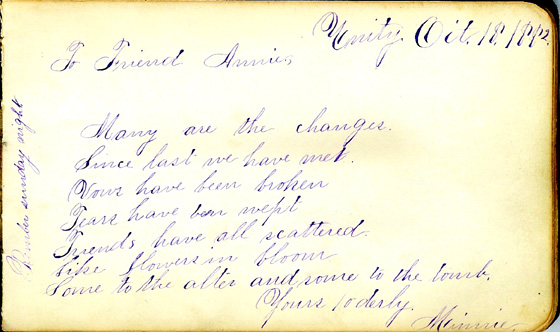 Unity Oct. 18, 1882
To Friend Annie,
Many are the changes.
Since last we have met.
Vows have been broken
Tears have been wept
Friends have all scattered.
Like flowers in bloom
Some to the alter and some to the tomb.
Yours
Minnie
sunday night